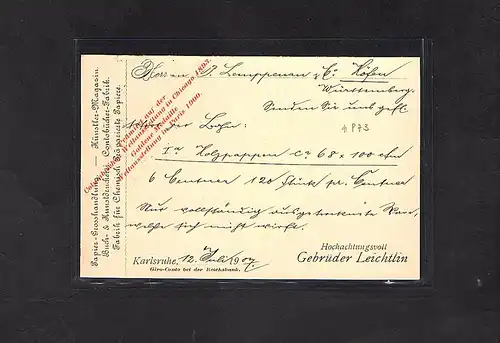 Papier-Grosshandlung. — Künstler-Magazin.
Buch- & Kunstdruckerei. Contobücher-Fabrik.
Fabrik für Chemisch Präparierte Papiere.
Weltausstellung in Chicago 1893.
Goldene Medaille
Weltausstellung in Paris 1900.
Herren J. Lemppenau & Co. Höfen
Württemberg.
Senden Sie uns gefl.
1 P73
per Bahn:
Ia Holzpappen ca 68 x 100 ctm
6 Centner 120 Stück pr. Centner
Nur vollständig ausgetrocknete Ware,
welche sich nicht wirft.
Hochachtungsvoll
Gebrüder Leichtlin
Karlsruhe, 12. Juli 1907.
Giro-Conto bei der Reichsbank.